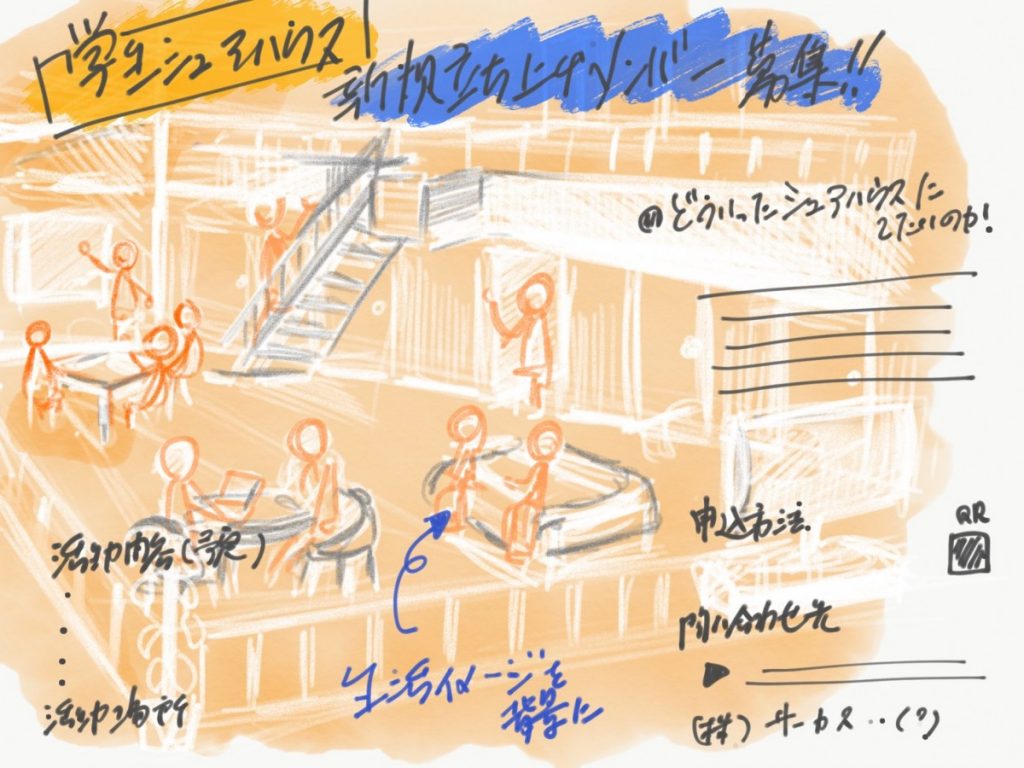 学生シェアハウス
新規立ち上げメンバー募集!!
@どういったシェアハウスに
したいのか!
活動内容(
・
・
・
・
活動場所
生活イメージを
背景に
申込方法
QR
問い合わせ先
▶
(株)サーカス‥(?)